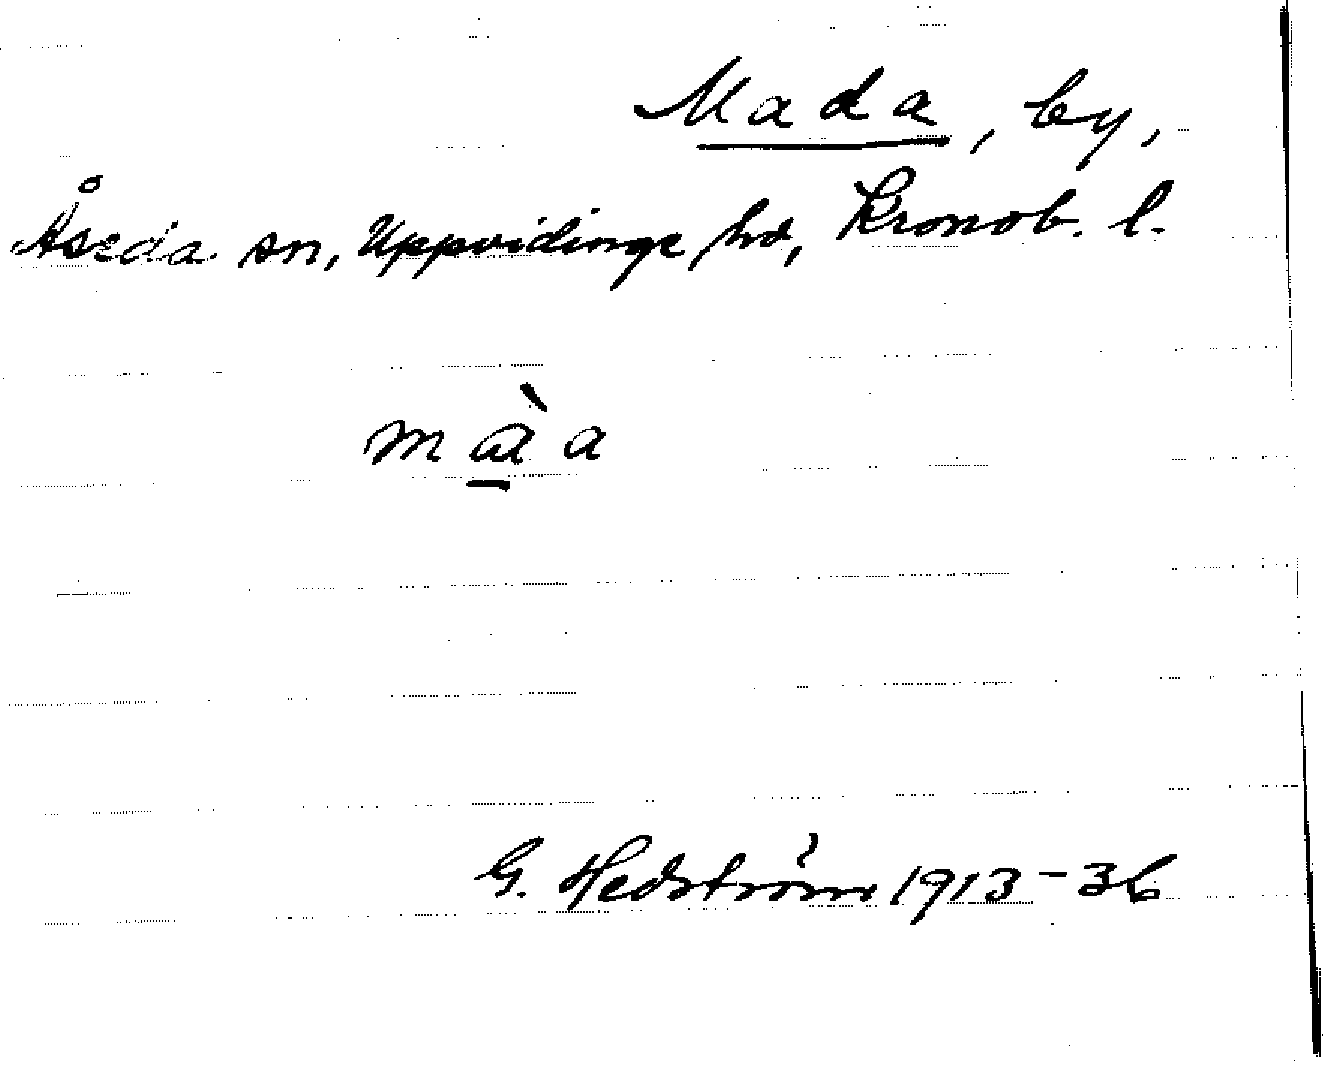 Mada, by,
Åseda sn, Uppvidinge hd, Kronob. l.
m à̱ a
G. Hedström 1913-36